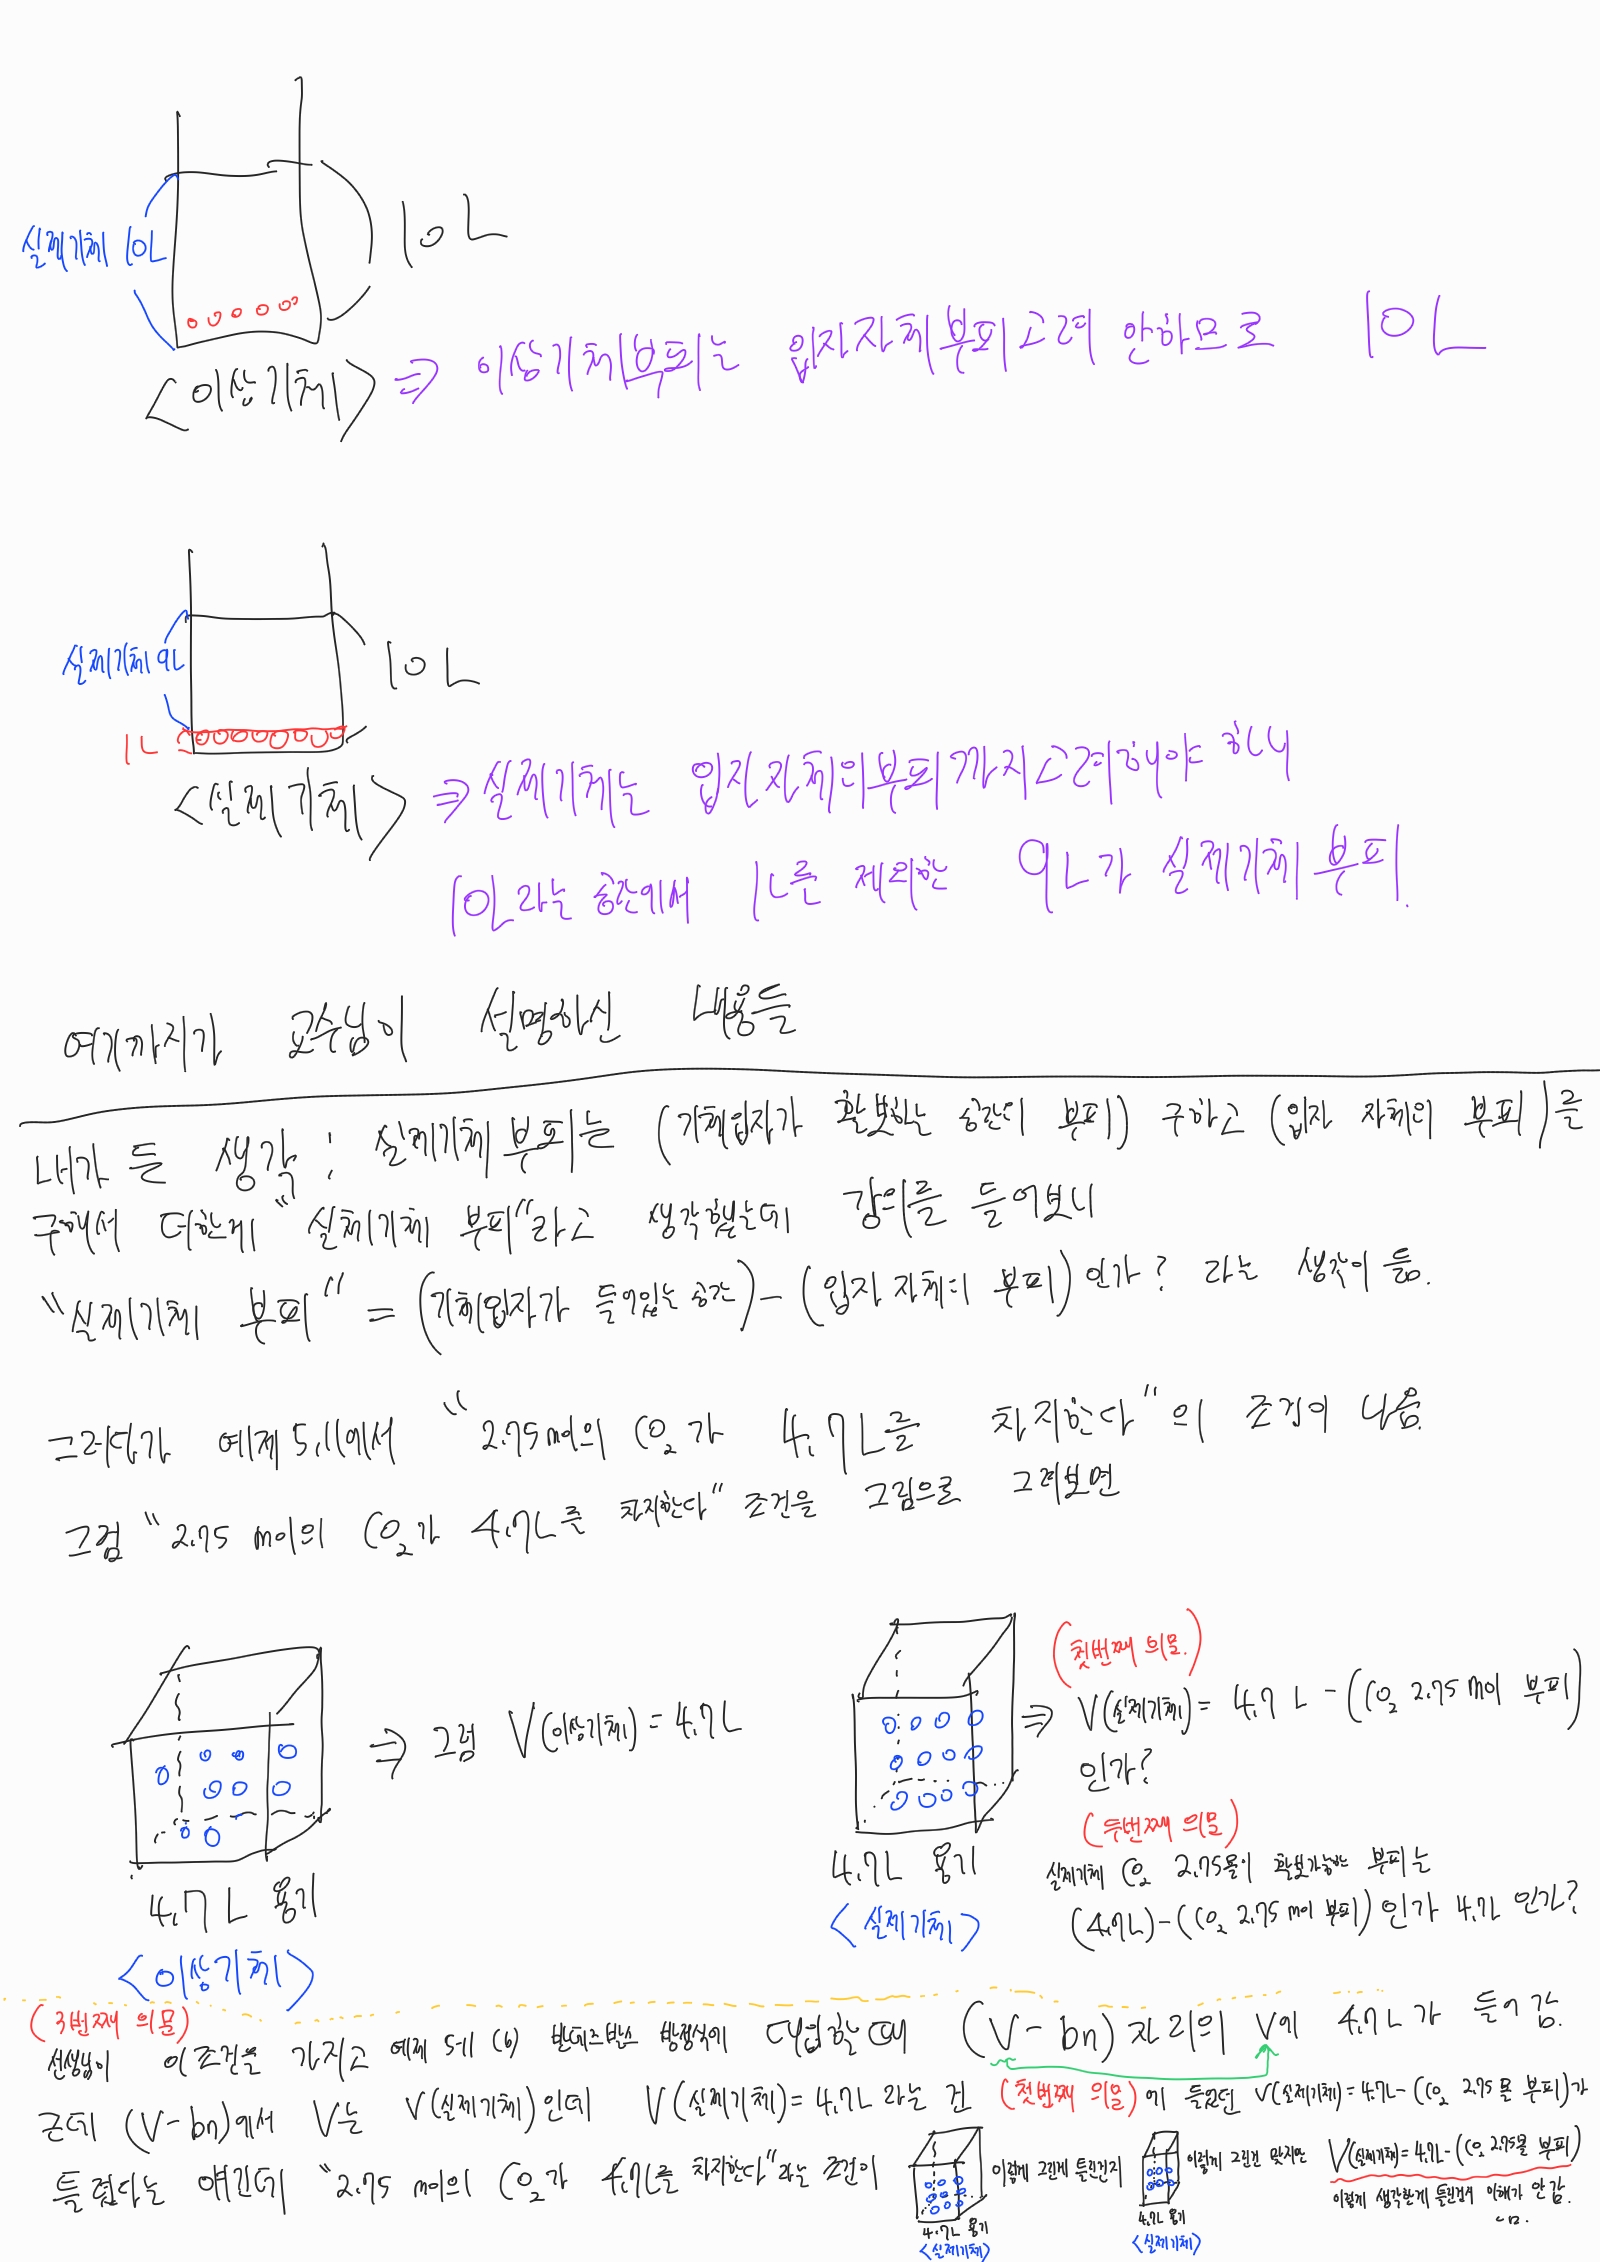 실제기체 10L
10L
<이상기체> ⇒ 이상기체부피는 입자자체부피고려 안하므로 10L
실제기체 9L
10L
1L
<실제기체> ⇒ 실제기체는 입자자체의부피까지고려해야 하니
10L라는 공간에서 1L를 제외한 9L가 실제기체 부피.
여기까지가 교수님이 설명하신 내용들
내가 든 생각 : 실제기체 부피는 (기체입자가 확보하는 공간의 부피) 구하고 (입자 자체의 부피)를
구해서 더한게 "실제기체 부피"라고 생각했는데 강의를 들어보니
"실제기체 부피" = (기체입자가 들어있는 공간) - (입자 자체의 부피) 인가? 라는 생각이 듬.
그러다가 예제 5.11에서 "2.75 mol의 CO2가 4.7L를 차지한다"의 조건이 나옴.
그럼 "2.75 mol의 CO2가 4.7L를 차지한다" 조건을 그림으로 그려보면
⇒ 그럼 V(이상기체) = 4.7L
4.7L 용기
<이상기체>
(첫번째 의문.)
⇒ V(실제기체) = 4.7 L - (CO2 2.75 mol 부피)
인가?
(두번째 의문)
4.7L 용기
<실제기체>
실제기체 CO2 2.75몰이 확보가능한 부피는
(4.7L)-(CO2 2.75 mol 부피) 인가 4.7L 인가?
(3번째 의문)
선생님이 이 조건을 가지고 예제 5-11 (b) 반데르발스 방정식에 대입할때 (V - bn) 자리의 V에 4.7L가 들어 감.
근데 (V-bn)에서 V는 V(실제기체)인데 V(실제기체)=4.7L 라는 건 (첫번째 의문)에 들었던 V(실제기체)=4.7L-(CO2 2.75몰 부피)가
틀렸다는 얘긴데 "2.75 mol의 CO2가 4.7L를 차지한다"라는 조건이
이렇게 그린게 틀린건지
4.7L 용기
<실제기체>
이렇게 그린건 맞지만
4.7L 용기
<실제기체>
V(실제기체)=4.7L-(CO2 2.75몰 부피)
이렇게 생각한게 틀린건지 이해가 안감.